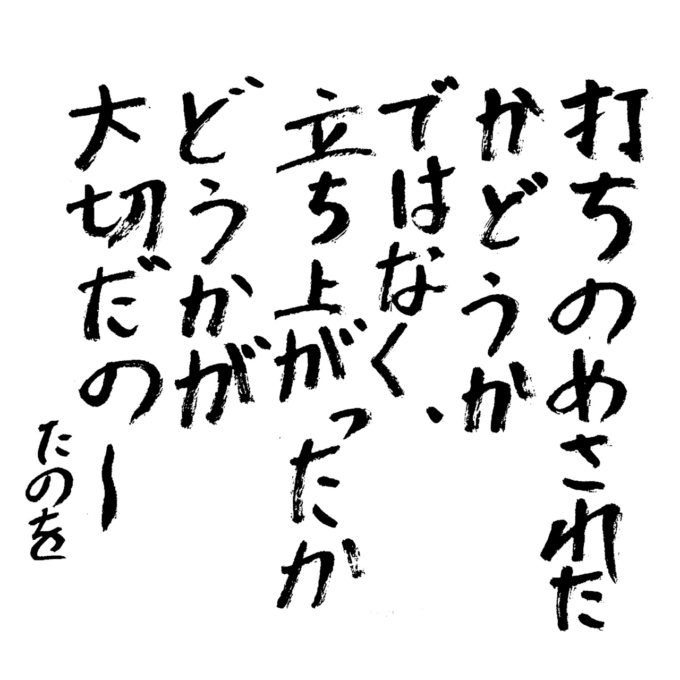 打ちのめされた
かどうか
ではなく、
立ち上がったか
どうかが
大切だのー
たのを